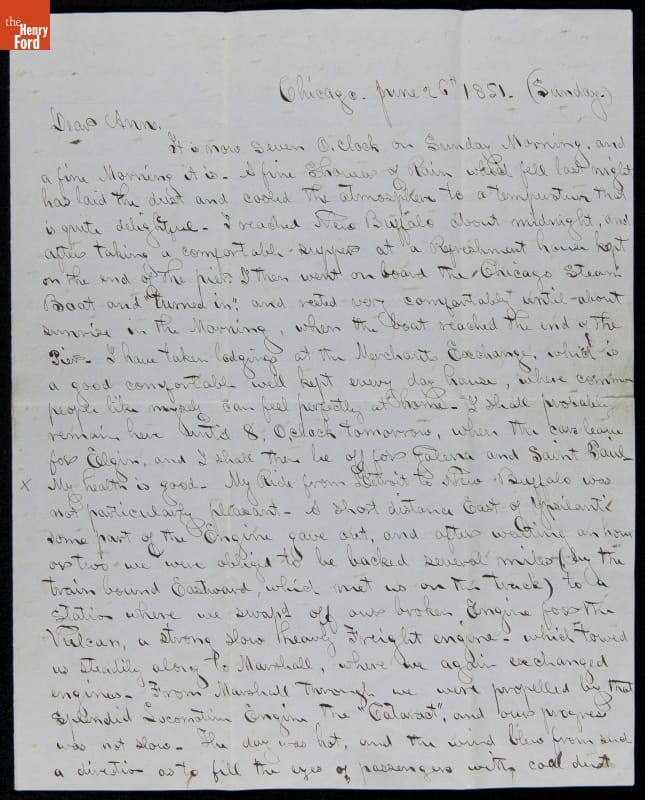 the
Henry
Ford
Chicago. June 26th 1851. (Sunday.)
Dear Ann.
It is now seven O,clock on Sunday Morning, and
a fine Morning it is - A fine Shower of Rain which fell last night
has laid the dust and cooled the atmosphere to a temperature that
is quite delightful - I reached New Buffalo about midnight, and
after taking a comfortable supper at a Refreshment house kept
on the end of the pier, I then went on board the Chicago Steam
Boat and "turned in," and rested very comfortably until about
sunrise in the Morning, when the boat reached the end of the
Pier - I have taken lodgings at the Merchants Exchange, which is
a good comfortable well kept every day house, where common
people like myself can feel perfectly at home - I shall probably
remain here until 8, O,clock tomorrow, when the cars leave
for Elgin, and I shall then be off for Galena and Saint Paul -
x My health is good - My Ride from Detroit to New Buffalo was
not particularly pleasant - A short distance East of Ypsilanti
some part of the Engine gave out, and after waiting an hour
or two we were obliged to be backed several miles (by the
train bound Eastward, which met us on the track) to a
station where we swapd off our broken Engine for the
Vulcan, a strong slow heavy Freight engine - which towed
us steadily along to Marshall, where we again exchanged
engines - From Marshall through we were propelled by that
Splendid Locomotive Engine the "Cataract", and our progress
was not slow - The day was hot, and the wind blew from such
a direction as to fill the eyes of passengers with coal dust